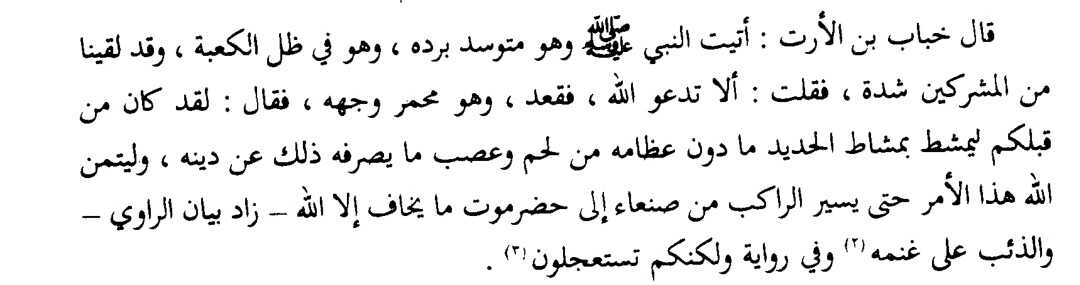 قال خباب بن الأرت : أتيت النبي ﷺ وهو متوسد برده ، وهو في ظل الكعبة ، وقد لقينا
من المشركين شدة ، فقلت : ألا تدعو الله ، فقعد ، وهو محمر وجهه ، فقال : لقد كان من
قبلكم ليمشط بمشاط الحديد ما دون عظامه من لحم وعصب ما يصرفه ذلك عن دينه ، وليتمن
الله هذا الأمر حتى يسير الراكب من صنعاء إلى حضرموت ما يخاف إلا الله – زاد بيان الراوي –
والذئب على غنمه (٢) وفي رواية ولكنكم تستعجلون (٣) .